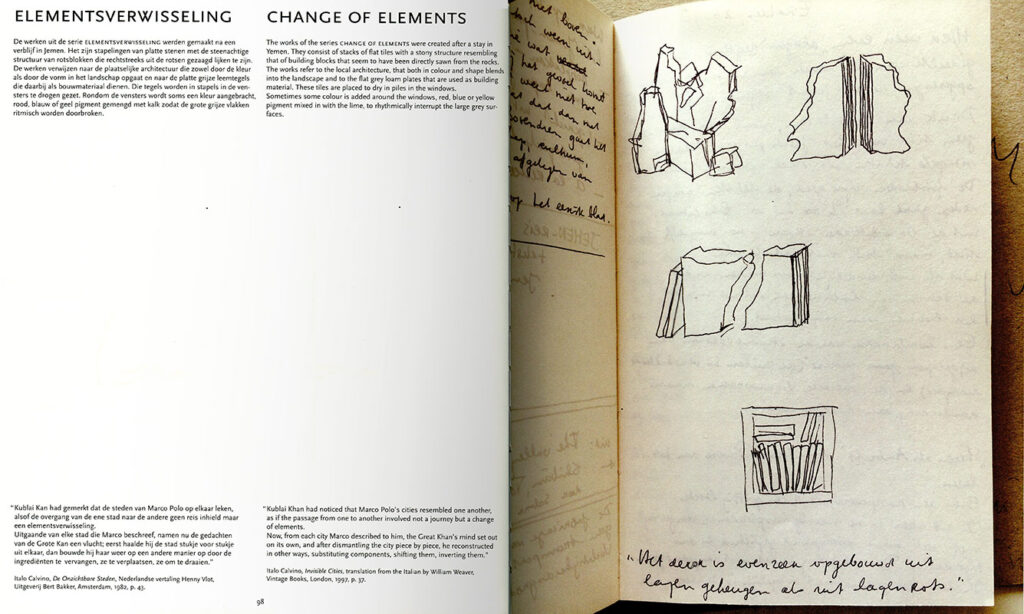 ELEMENTSVERWISSELING
De werken uit de serie ELEMENTSVERWISSELING werden gemaakt na een
verblijf in Jemen. Het zijn stapelingen van platte stenen met de steenachtige
structuur van rotsblokken die rechtstreeks uit de rotsen gezaagd lijken te zijn.
De werken verwijzen naar de plaatselijke architectuur die zowel door de kleur
als door de vorm in het landschap opgaat en naar de platte grijze leemtegels
die daarbij als bouwmateriaal dienen. Die tegels worden in stapels in de ven-
sters te drogen gezet. Rondom de vensters wordt soms een kleur aangebracht,
rood, blauw of geel pigment gemengd met kalk zodat de grote grijze vlakken
ritmisch worden doorbroken.
CHANGE OF ELEMENTS
The works of the series CHANGE OF ELEMENTS were created after a stay in
Yemen. They consist of stacks of flat tiles with a stony structure resembling
that of building blocks that seem to have been directly sawn from the rocks.
The works refer to the local architecture, that both in colour and shape blends
into the landscape and to the flat grey loam plates that are used as building
material. These tiles are placed to dry in piles in the windows.
Sometimes some colour is added around the windows, red, blue or yellow
pigment mixed in with the lime, to rhythmically interrupt the large grey sur-
faces.
“Kublai Kan had gemerkt dat de steden van Marco Polo op elkaar leken,
alsof de overgang van de ene stad naar de andere geen reis inhield maar
een elementsverwisseling.
Uitgaande van elke stad die Marco beschreef, namen nu de gedachten
van de Grote Kan een vlucht; eerst haalde hij de stad stukje voor stukje
uit elkaar, dan bouwde hij haar weer op een andere manier op door de
ingrediënten te vervangen, ze te verplaatsen, ze om te draaien.”
Italo Calvino, De Onzichtbare Steden, Nederlandse vertaling Henny Vlot,
Uitgeverij Bert Bakker, Amsterdam, 1982, p. 43.
“Kublai Khan had noticed that Marco Polo's cities resembled one another,
as if the passage from one to another involved not a journey but a change
of elements.
Now, from each city Marco described to him, the Great Khan's mind set out
on its own, and after dismantling the city piece by piece, he reconstructed
in other ways, substituting components, shifting them, inverting them.”
Italo Calvino, Invisible Cities, translation from the Italian by William Weaver,
Vintage Books, London, 1997, p. 37.
98
met boven.
toch weer uit.
wat
het gevoel komt
weg met hoe
dat dan met
bovendien gaat het
cultuur,
afgelegen van
op het eerste blad.
“Het decor is evenzeer opgebouwd uit
lagen geheugen als uit lagen rots.”